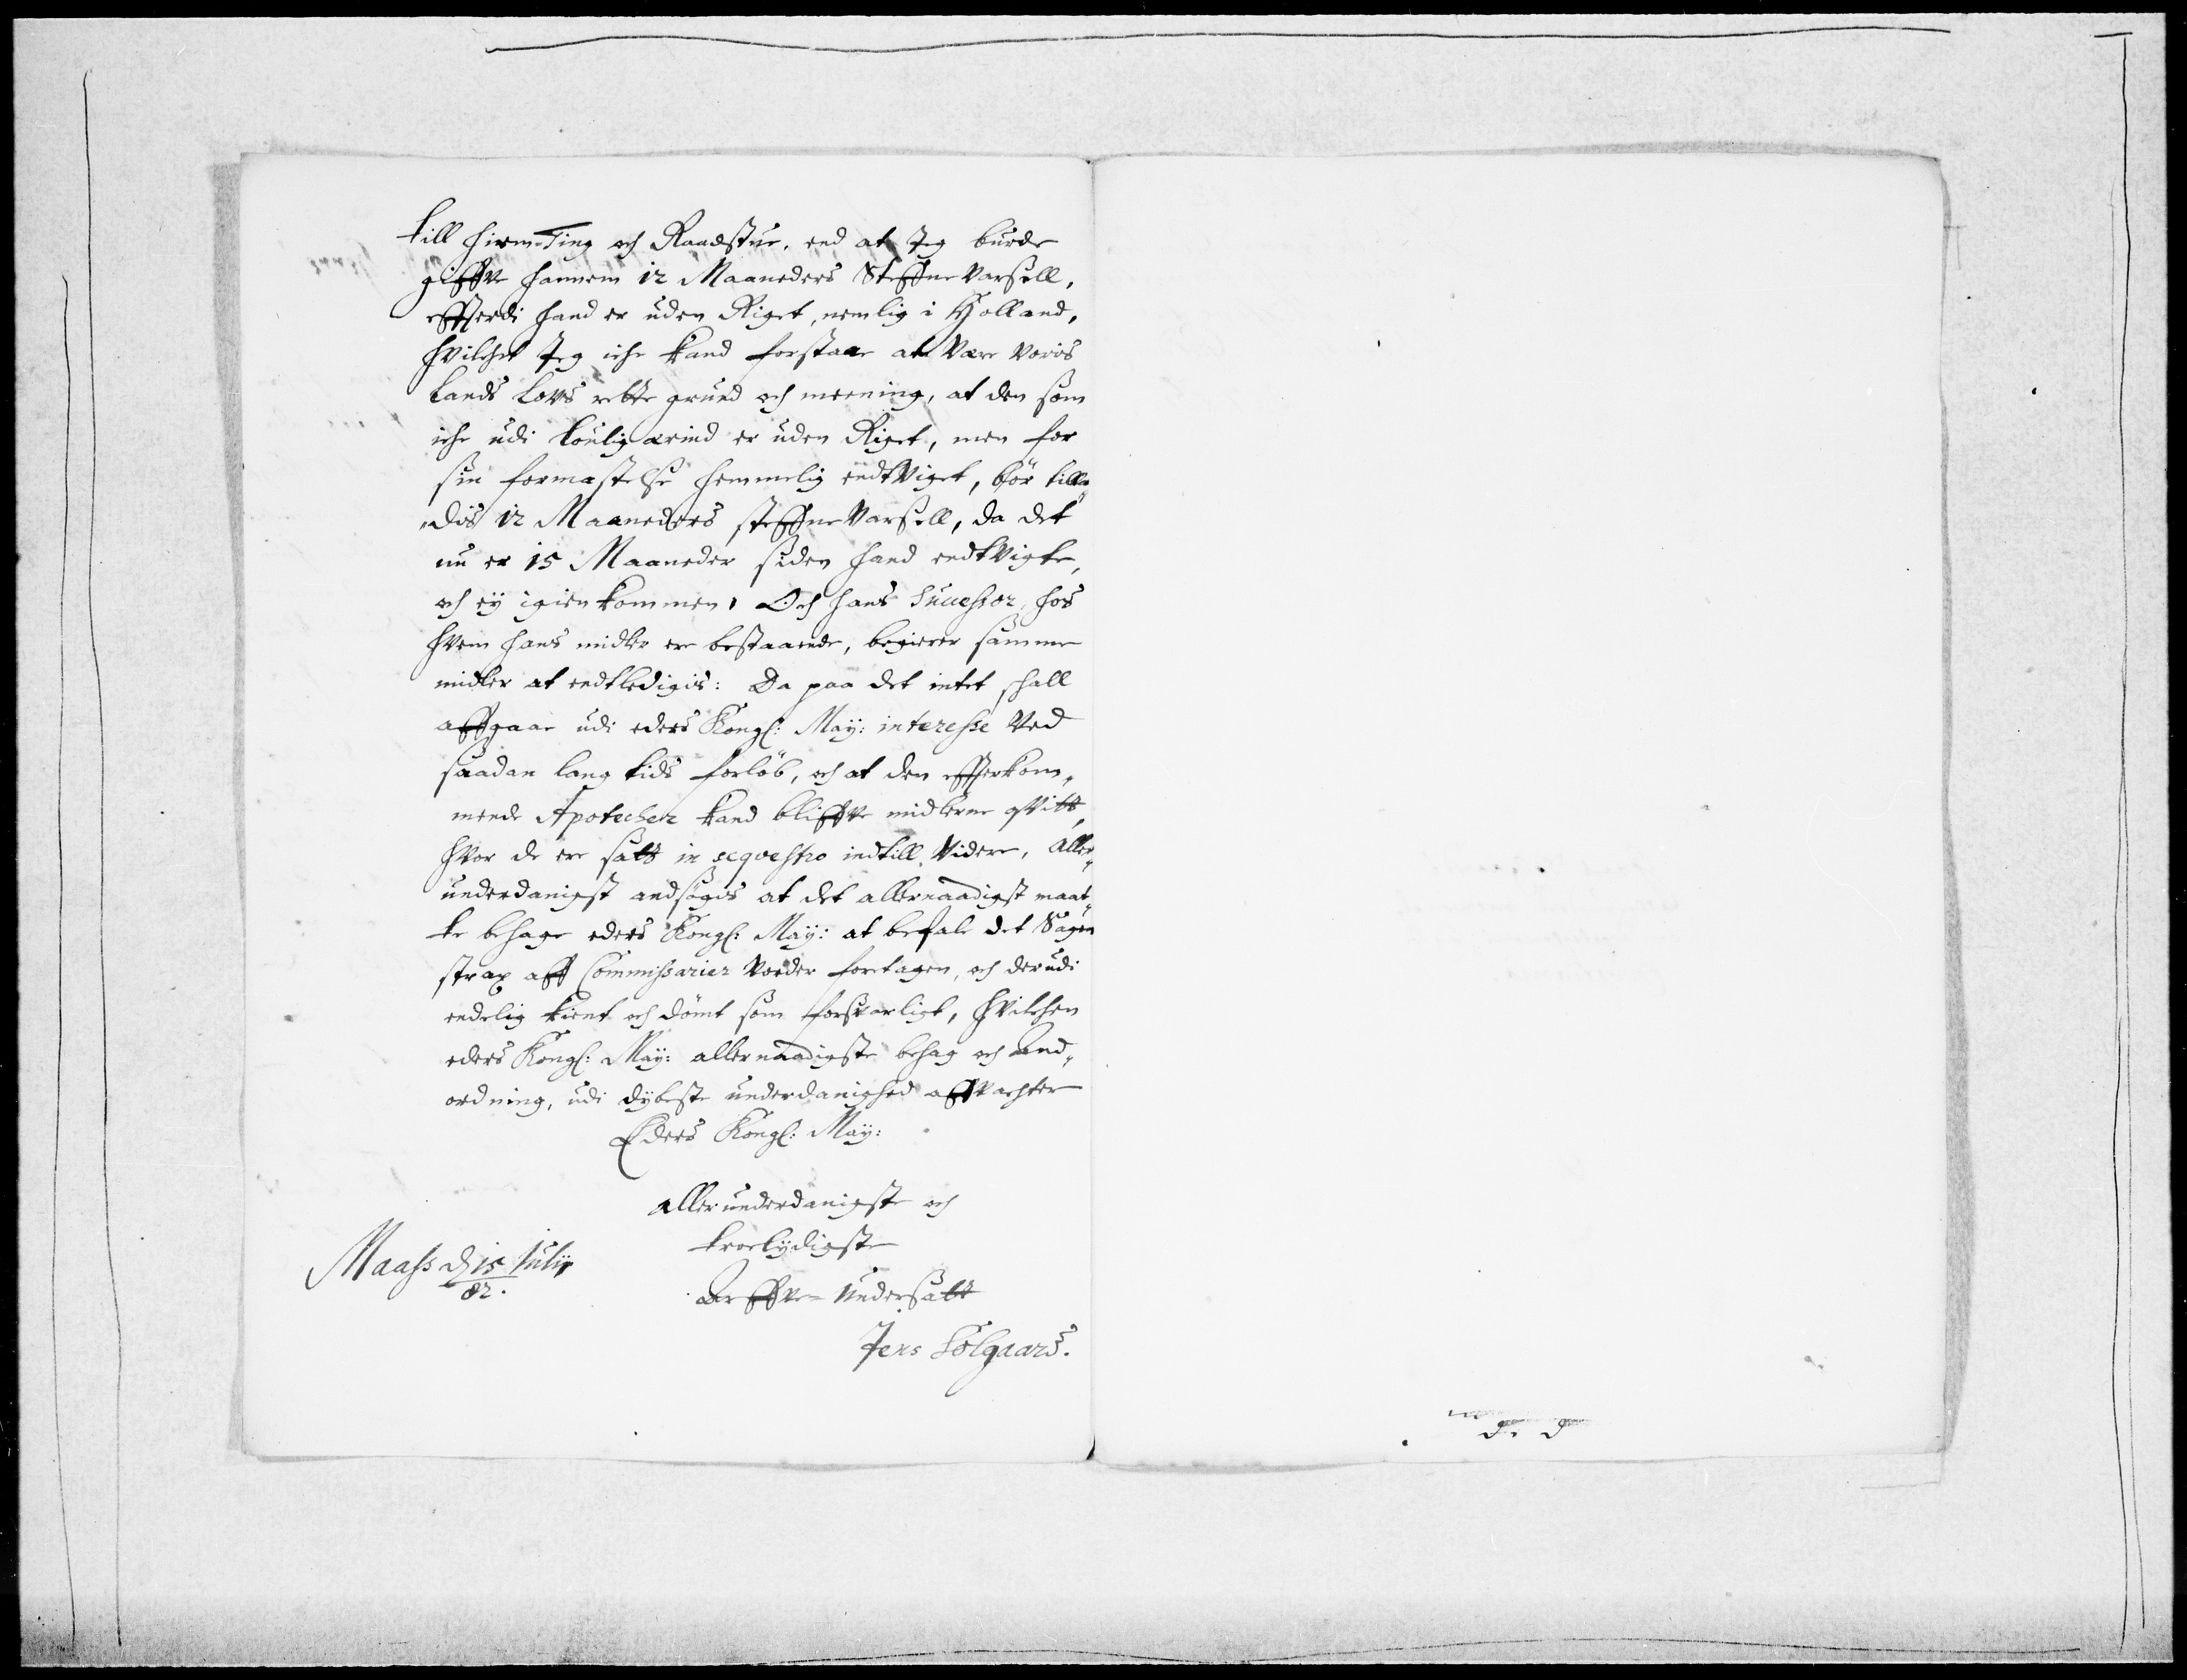 till Hiem-Ting och Raadstue, end at Jeg burde
giffve hannem 12 Maaneders Steffne Varsell,
effterdi hand er uden Riget, nemlig i Holland,
hvilchet Jeg iche kand forstaae at Være Voris
Lands Lovs rette grund och meening, at den som
iche udi louligærind er uden Riget, men for
sin formastelse hemmelig endtviget, bør till¬
„dis 12 Maaneders steffne Varsell, da det
nu er 15 Maaneder siden hand endtvigte,
och ey igien kommen, Och hans Successor, hos
hvem hans midler ere bestaaende, begierer samme
midler at endtledigis: Da paa det intet shall
affgaae udi eders Kongl: May: interesse Ved
saadan lang tids forløb, och at den effterkom„
mende Apothecher kand bliffve midlerne qvitt,
hvor de ere satt in seqvestro indtill Videre, Aller„
underdanigst andsøgis at det allernaadigst maat„
te behage eders Kongl: May: at befale det Sagen
strax aff Commissarier Vorder foretagen, och derudi
endelig kient och dømt som forsvarligt, hvilchen
eders Kongl: May: allernaadigste behag och And„
ordning, udi dybeste underdanighed affvachter
Eders Kongl: May:
allerunderdanigste och
troelydigste
Arffve- Undersatt
Jens Solgaard.
Maass d 15 Julij
82.